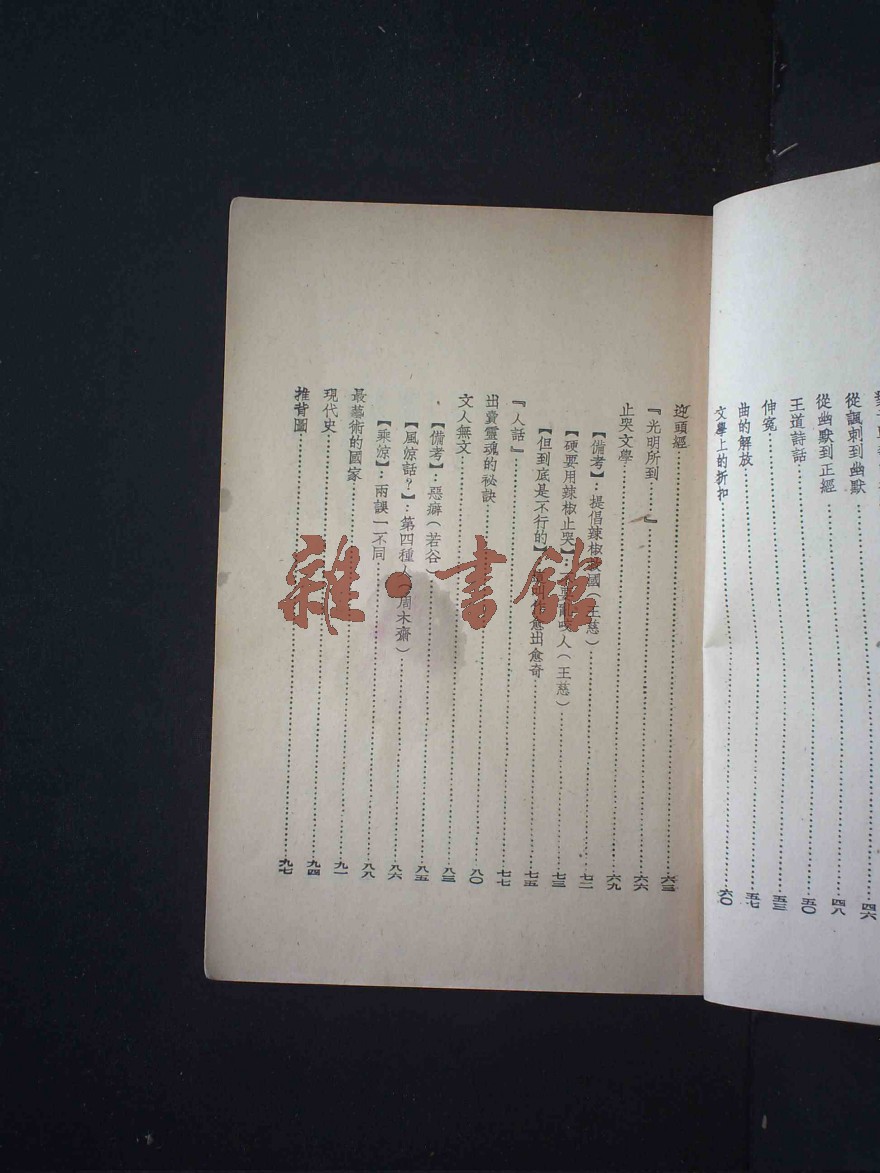 從諷刺到幽默……四六
從幽默到正經……四八
王道詩話……五〇
伸冤……五三
曲的解放……五七
文學上的折扣……六〇
迎頭經……六三
『光明所到……』……六六
止哭文學……六九
【備考】：提倡辣椒救國（王慈）……七二
【硬要用辣椒止哭】：不要亂咬人（王慈）……七三
【但到底是不行的】：愈出愈奇……七五
『人話』……七七
出賣靈魂的祕訣……八〇
文人無文……八三
【備考】：惡癖（若谷）……八五
【風涼話？】：第四種人（周木齋）……八六
【乘涼】：兩誤一不同……八八
最藝術的國家……九一
現代史……九四
推背圖……九七
雜·書館